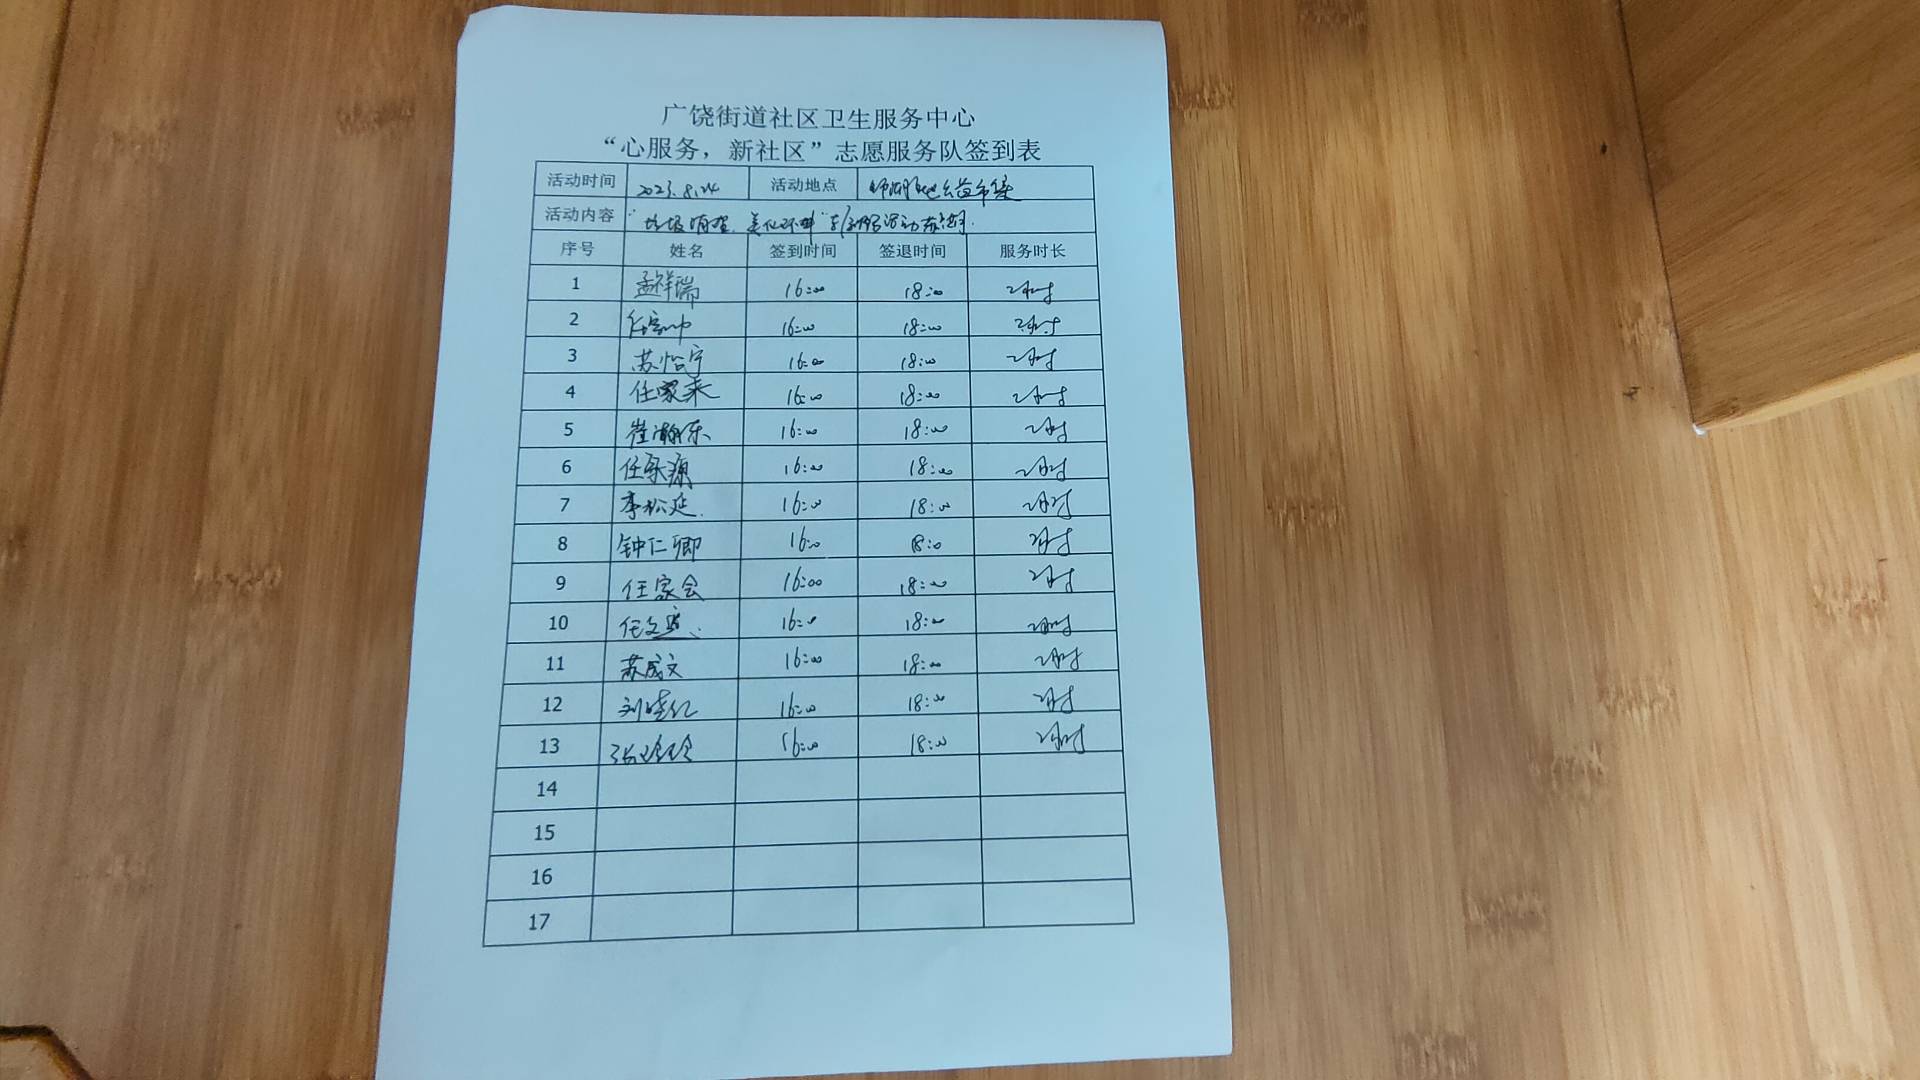 广饶街道社区卫生服务中心
“心服务，新社区”志愿服务队签到表
活动时间 2023.8.24 活动地点 公益市集
活动内容 “垃圾 美化环
序号 姓名 签到时间 签退时间 服务时长
1 孟祥瑞 16:00 18:00 2小时
2 任家 16:00 18:00 2小时
3 苏怡宁 16:00 18:00 2时
4 任家来 16:00 18:00 2小时
5 崔瀚东 16:00 18:00 2时
6 任家源 16:00 18:00 2时
7 李松延 16:00 18:00 2时
8 钟仁卿 16:0 18:0 2时
9 任家会 16:00 18:00 2时
10 任文 16:0 18:00 2时
11 苏成文 16:00 18:00 2时
12 刘晓红 16:00 18:00 2时
13 张玲玲 16:00 18:00 2时
14
15
16
17